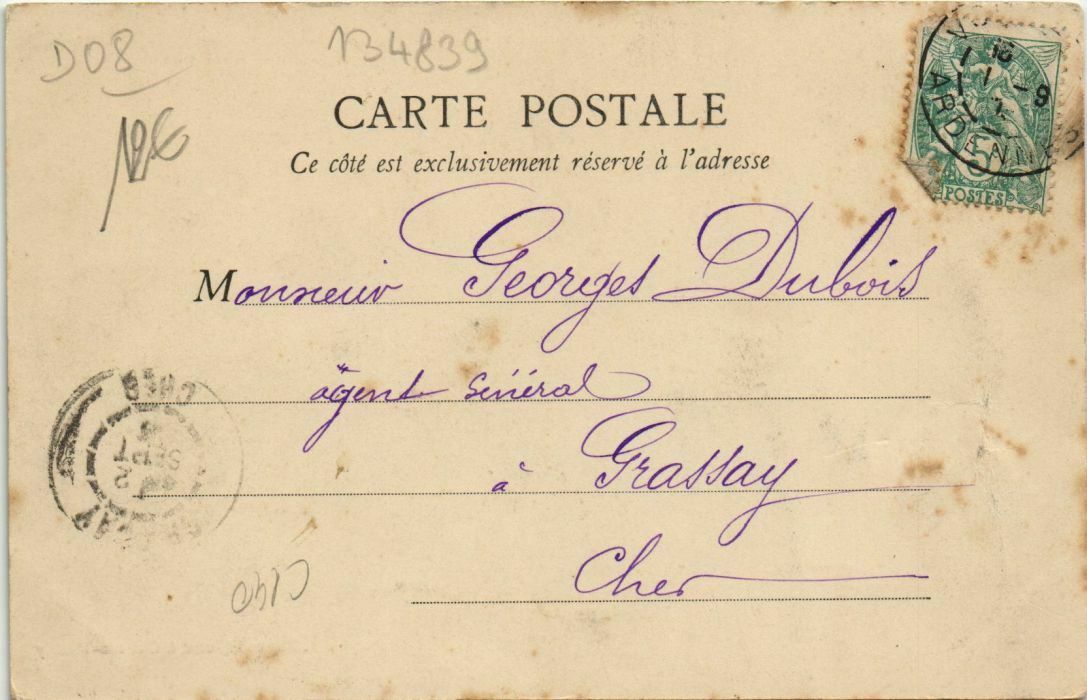 D08
134839
12€
CARTE POSTALE
Ce côté est exclusivement réservé à l'adresse
5
POSTES
ARDENNES
Monsieur Georges Dubois
agent Général
à Grassay
Cher
CHER
SEPT